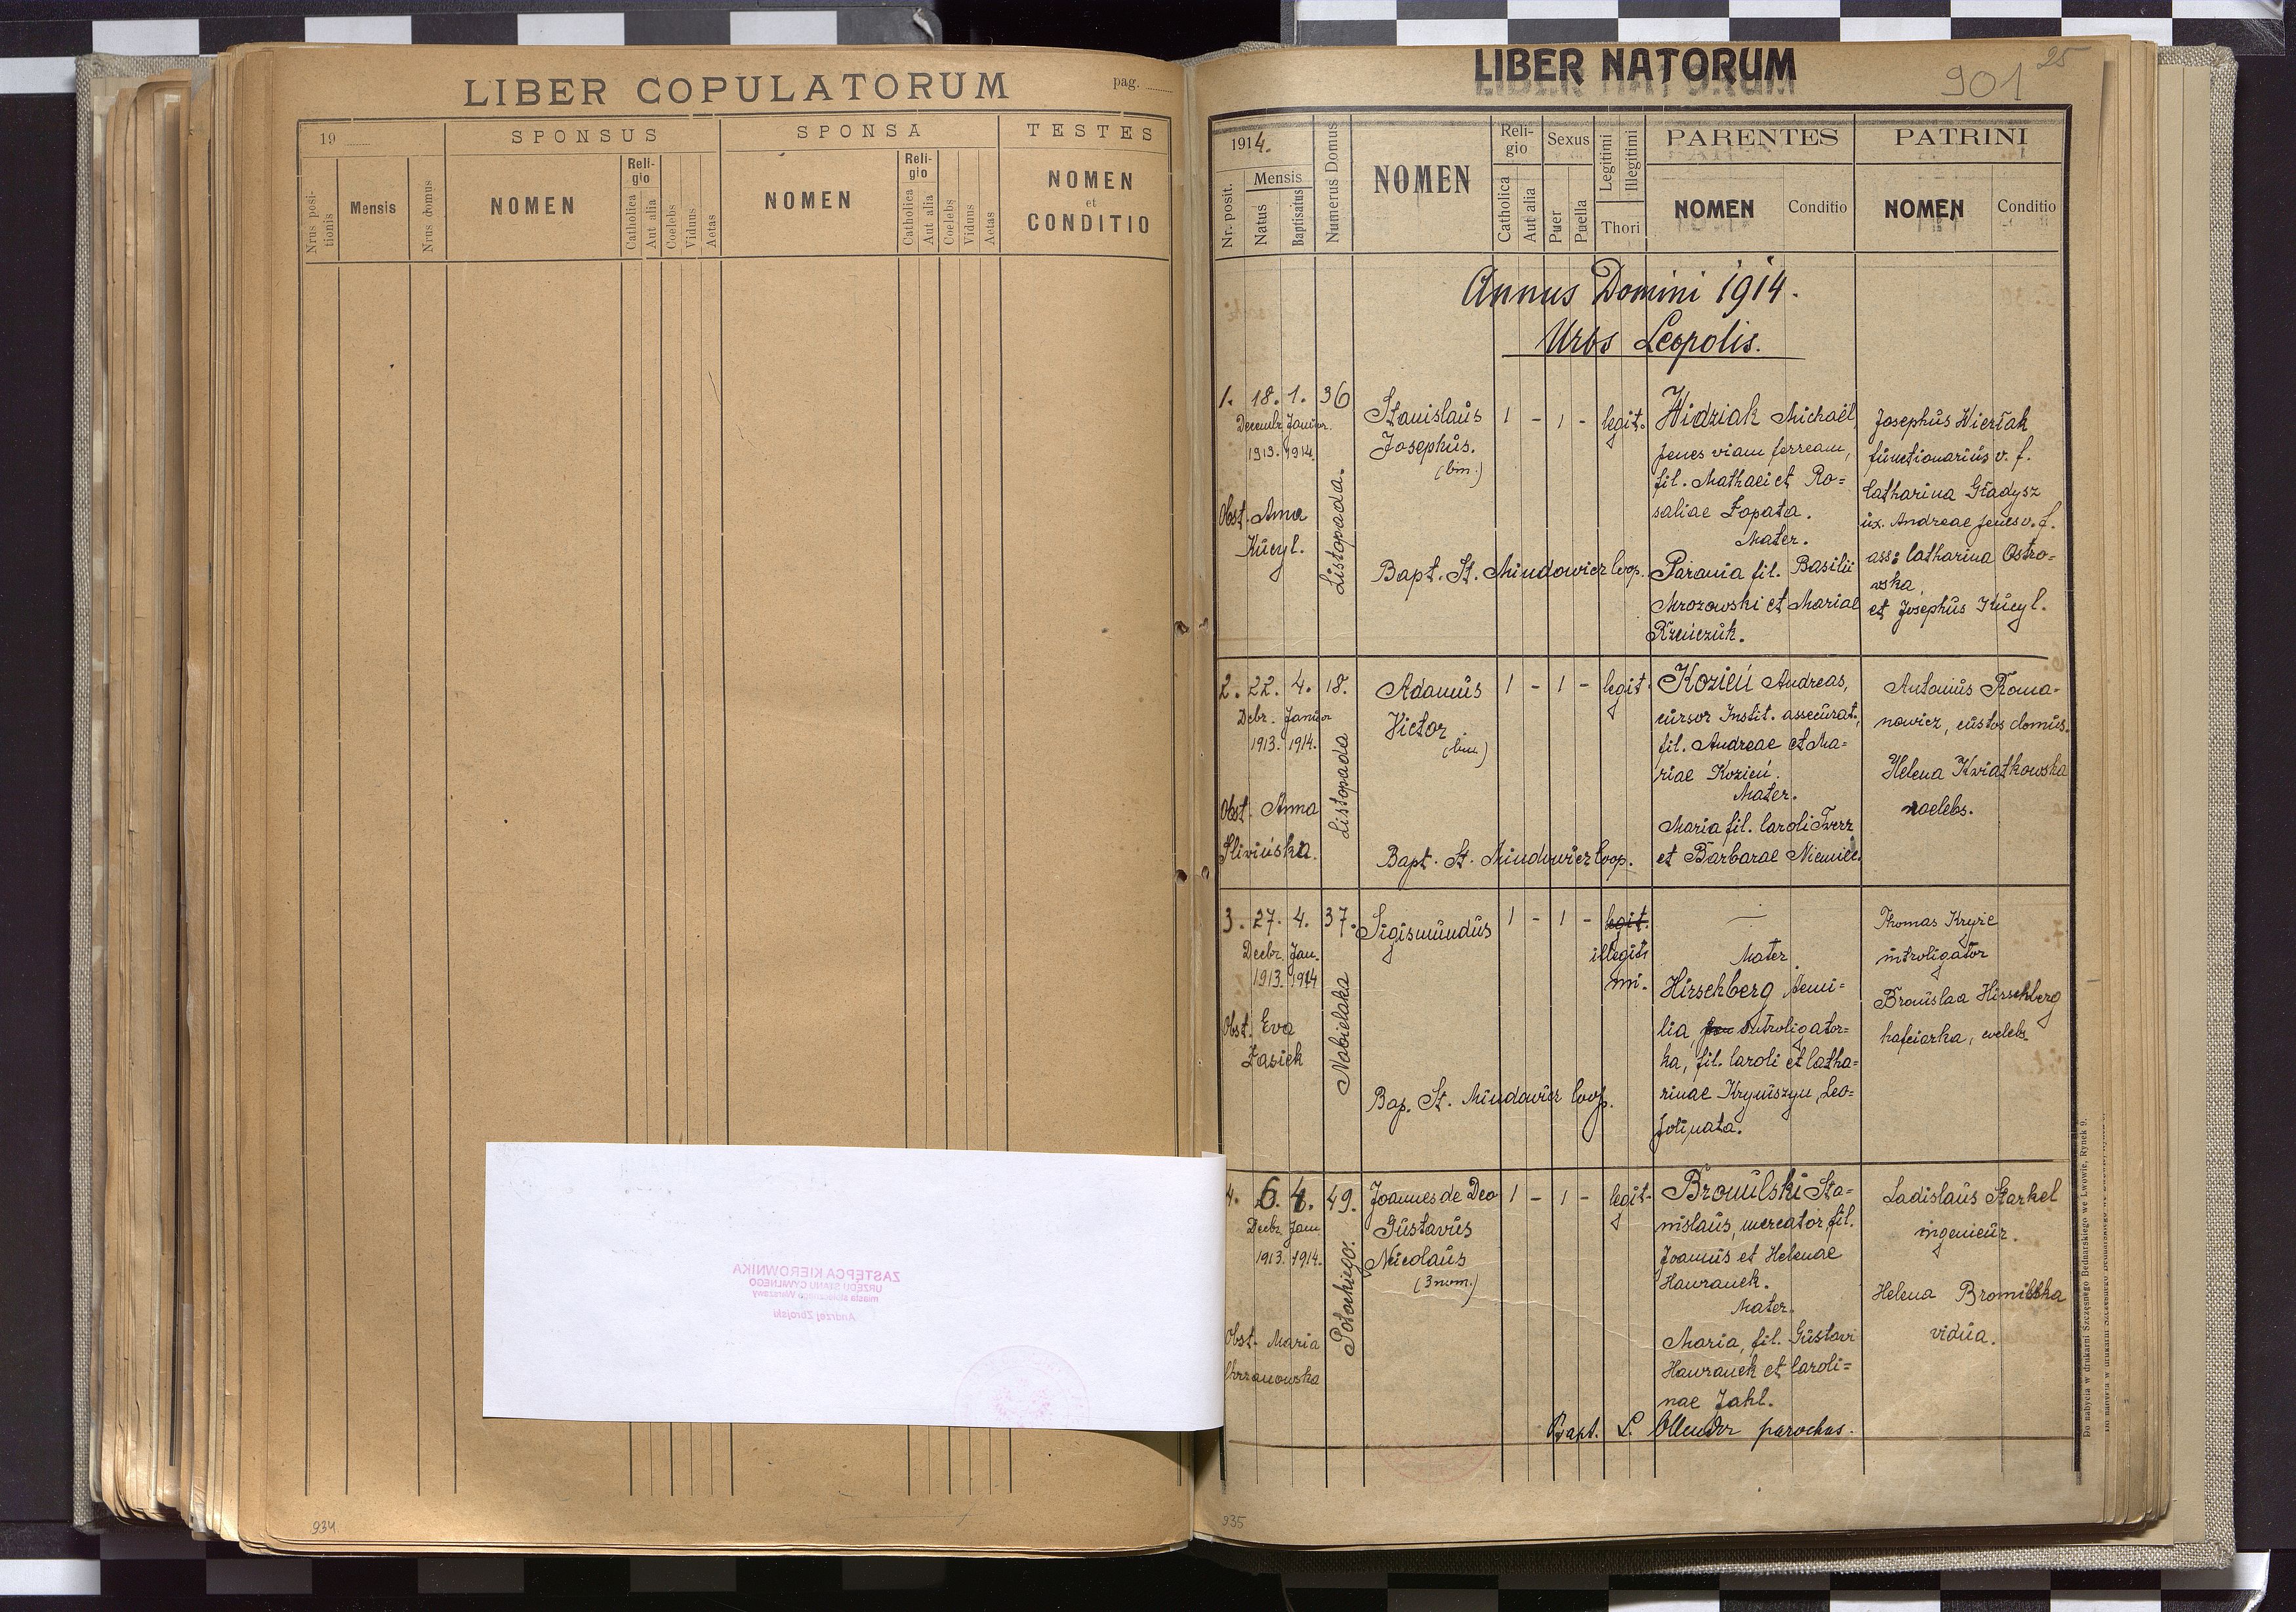 LIBER COPULATORUM
pag.
19
SPONSUS
SPONSA
TESTES
Nrus posi-
tionis
Mensis
Nrus domus
NOMEN
Reli-
gio
Catholica
Aut alia
Coelebs
Viduus
Aetas
NOMEN
Reli-
gio
Catholica
Aut alia
Coelebs
Viduus
Aetas
NOMEN
et
CONDITIO
934
ZASTĘPCA KIEROWNIKA
URZĘDU STANU CYWILNEGO
miasta stołecznego Warszawy
Andrzej Zbrojski
LIBER NATORUM
901
25
1914.
Nr. posit.
Mensis
Natus
Baptisatus
Numerus Domus
NOMEN
Reli-
gio
Catholica
Aut alia
Sexus
Puer
Puella
Legitimi
Illegitimi
Thori
PARENTES
NOMEN
Conditio
PATRINI
NOMEN
Conditio
Annus Domini 1914.
Urbs Leopolis.
1. 18. 1. 36
Decembr. Januar.
1913. 1914.
Obst. Anna
Kucyl.
Listopada.
Stanislaus
Josephus.
(bin.)
1 - 1 - legit.
Bapt. St. Mindowicz Coop.
Widziak Michaël,
penes viam ferream,
fil. Mathaei et Ro=
saliae Łopata.
Mater.
Parania fil. Basilii
Mrozowski et Mariae
Josephus Wierciak
functionarius v. f.
Catharina Gładysz
ux. Andreae penes v. f.
ass: Catharina Ostro=
wska
et Josephus Kucyl.
2. 22. 4. 18.
Dcbr. Januar
1913. 1914.
Obst. Anna
Śliwińska.
Listopada
Adamus
Victor
(bin.)
1 - 1 - legit.
Bapt. St. Mindowicz Coop.
Kozień Andreas,
cursor Instit. assecurat.,
fil. Andreae et Ma=
riae Kozień.
Mater.
Maria fil. Caroli Twerz
et Barbarae Niemiec.
Antonius Roma-
nowicz, custos domus.
Helena Kwiatkowska
3. 27. 4. 37.
Decbr. Jan.
1913. 1914
Obst. Eva
Łasiek
Nabielaka
Sigismundus
1 - 1 - legit.
illegiti
mi.
Bap. St. Mindowicz Coop.
Mater
Hirschberg Aemi=
lia, introligator=
ka, fil. Caroli et Catha=
rinae Kryniszyn, Leo=
poli nata.
Thomas
introligator
Bronislaa Hirschberg
hafciarka, coelebs.
4. 6. 4. 49.
Decbr. Jan.
1913. 1914.
Obst. Maria
Chrzanowska
Potockiego.
Joannes de Deo
Gustavus
Nicolaus
(3 nom.)
1 - 1 - legit.
Bromilski Sta=
nislaus, mercator, fil.
Joannis et Helenae
Hawranek.
Mater.
Maria, fil. Gustavi
Hawranek et Caroli=
nae Jahl.
Ladislaus Starkel
ingenieur.
Helena Bromilska
vidua.
Bapt. parochus.
935
Do nabycia w drukarni Szczęsnego Bednarskiego we Lwowie, Rynek 9.